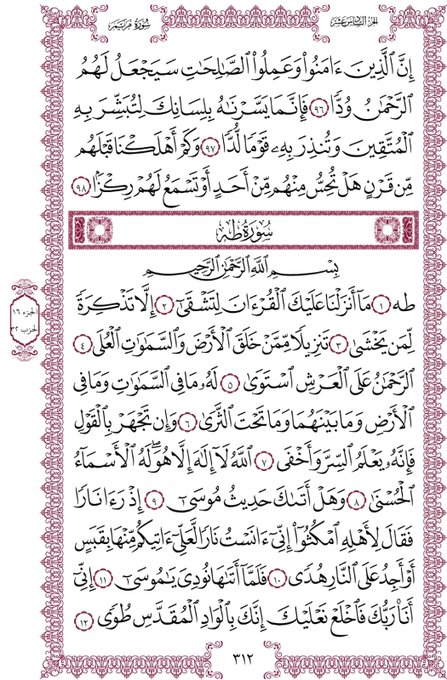 الجزء السادس عشر
سورة مريم
إِنَّ ٱلَّذِينَ ءَامَنُوا۟ وَعَمِلُوا۟ ٱلصَّـٰلِحَـٰتِ سَيَجْعَلُ لَهُمُ
ٱلرَّحْمَـٰنُ وُدًّا ٩٦ فَإِنَّمَا يَسَّرْنَـٰهُ بِلِسَانِكَ لِتُبَشِّرَ بِهِ
ٱلْمُتَّقِينَ وَتُنذِرَ بِهِۦ قَوْمًا لُّدًّا ٩٧ وَكَمْ أَهْلَكْنَا قَبْلَهُم
مِّن قَرْنٍ هَلْ تُحِسُّ مِنْهُم مِّنْ أَحَدٍ أَوْ تَسْمَعُ لَهُمْ رِكْزًۢا ٩٨
سُورَةُ طه
بِسْمِ ٱللَّهِ ٱلرَّحْمَـٰنِ ٱلرَّحِيمِ
طه ١ مَآ أَنزَلْنَا عَلَيْكَ ٱلْقُرْءَانَ لِتَشْقَىٰٓ ٢ إِلَّا تَذْكِرَةً
لِّمَن يَخْشَىٰ ٣ تَنزِيلًا مِّمَّنْ خَلَقَ ٱلْأَرْضَ وَٱلسَّمَـٰوَٰتِ ٱلْعُلَى ٤
ٱلرَّحْمَـٰنُ عَلَى ٱلْعَرْشِ ٱسْتَوَىٰ ٥ لَهُۥ مَا فِى ٱلسَّمَـٰوَٰتِ وَمَا فِى
ٱلْأَرْضِ وَمَا بَيْنَهُمَا وَمَا تَحْتَ ٱلثَّرَىٰ ٦ وَإِن تَجْهَرْ بِٱلْقَوْلِ
فَإِنَّهُۥ يَعْلَمُ ٱلسِّرَّ وَأَخْفَى ٧ ٱللَّهُ لَآ إِلَـٰهَ إِلَّا هُوَ ۖ لَهُ ٱلْأَسْمَآءُ
ٱلْحُسْنَىٰ ٨ وَهَلْ أَتَىٰكَ حَدِيثُ مُوسَىٰٓ ٩ إِذْ رَءَا نَارًا
فَقَالَ لِأَهْلِهِ ٱمْكُثُوٓا۟ إِنِّىٓ ءَانَسْتُ نَارًا لَّعَلِّىٓ ءَاتِيكُم مِّنْهَا بِقَبَسٍ
أَوْ أَجِدُ عَلَى ٱلنَّارِ هُدًى ١٠ فَلَمَّآ أَتَىٰهَا نُودِىَ يَـٰمُوسَىٰٓ ١١ إِنِّىٓ
أَنَا۠ رَبُّكَ فَٱخْلَعْ نَعْلَيْكَ ۖ إِنَّكَ بِٱلْوَادِ ٱلْمُقَدَّسِ طُوًى ١٢
الجزء ١٦
الحزب ٣٢
٣١٢